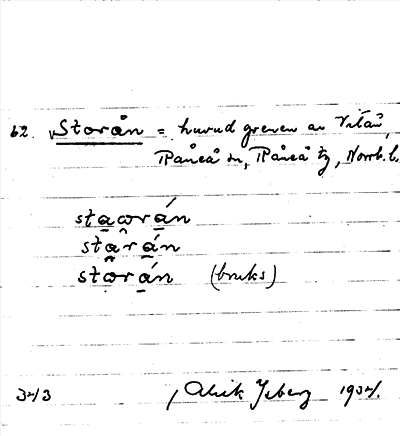 62. Storån = huvud grenen av Vitån,
Råneå sn, Råneå tg, Norrb. l.
stąωrán
stārán
stωrán (bruks)
34/3 1934.